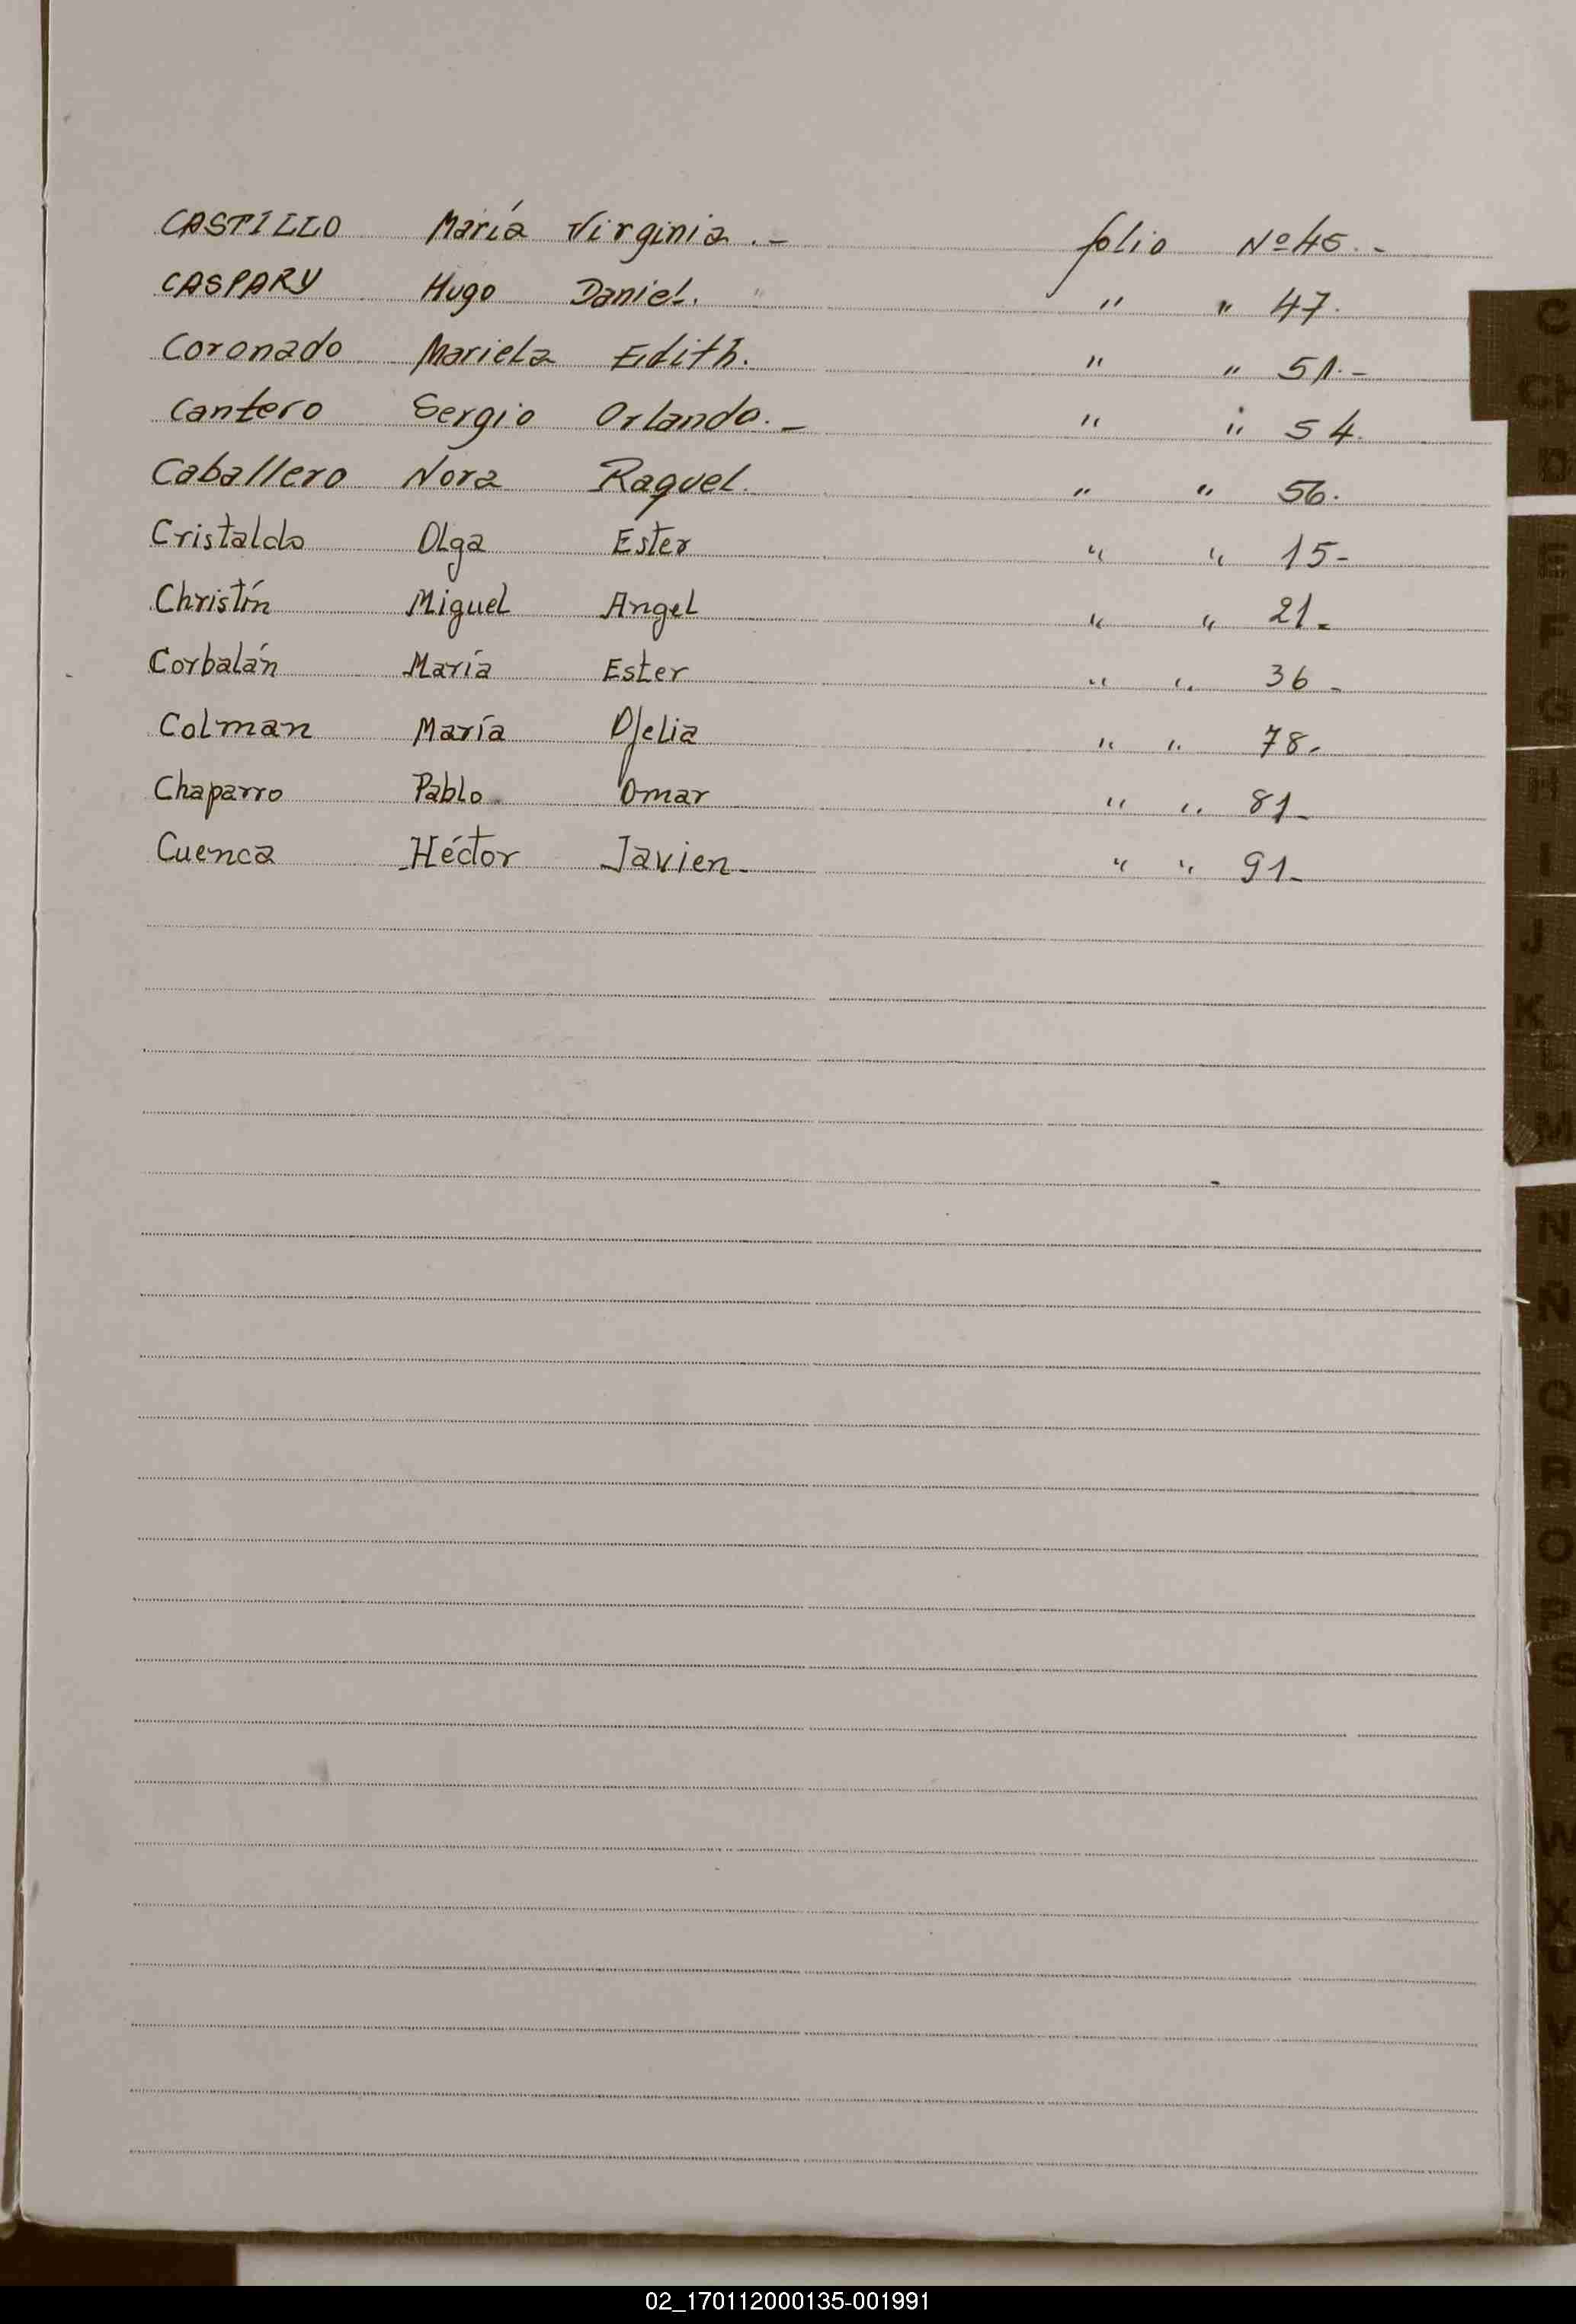 CASTILLO María Virginia .- folio Nº 45.-
CASPARY Hugo Daniel. " " 47.
Coronado Mariela Edith. " " 51.-
Cantero Sergio Orlando.- " " 54.
Caballero Nora Raquel. " " 56.
Cristaldo Olga Ester " " 15-
Christín Miguel Angel " " 21-
Corbalán María Ester " " 36-
Colman María Ofelia " " 78.
Chaparro Pablo Omar " " 81-
Cuenca Héctor Javien- " " 91-
C
CH
D
E
F
G
H
I
J
K
L
M
N
Ñ
O
P
S
T
W
X
U
V
02_170112000135-001991